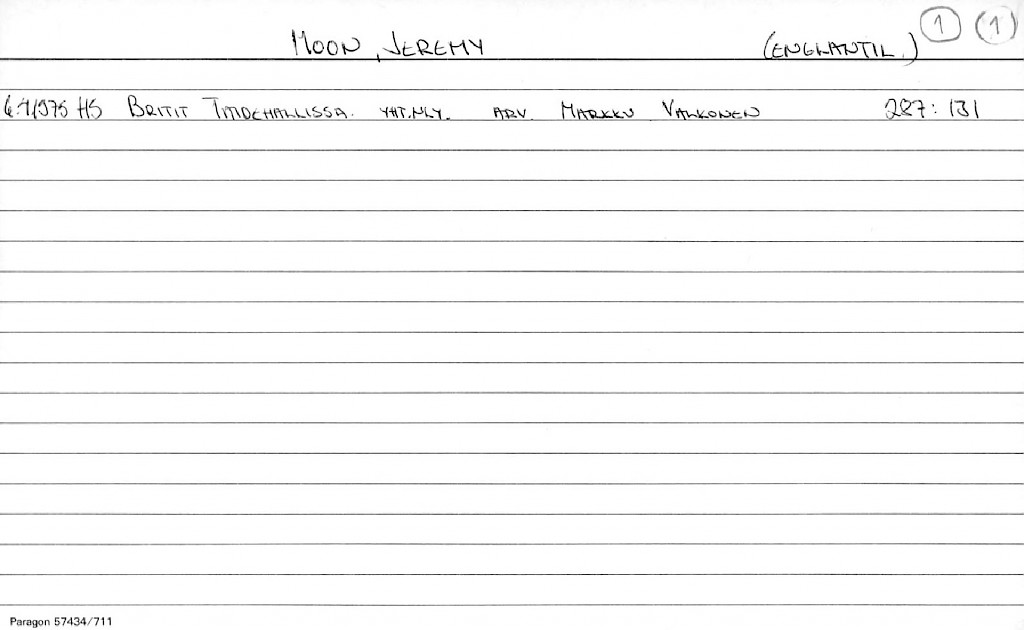 MOON, JEREMY (ENGLANTIL.) 1 (1)
1975 HS BRITIT TAIDEHALLISSA. YHT.NLY. ARV. MARKKU VALKONEN 287:131
Paragon 57434/711